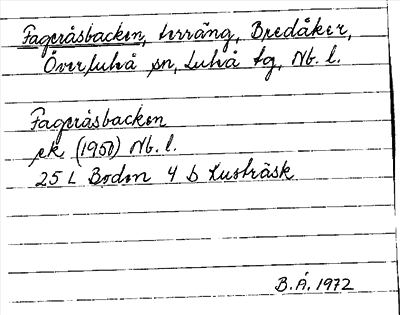 Fageråsbacken, terräng, Bredåker,
Överluleå sn, Luleå tg, Nb. l.
Fageråsbacken
ek (1950) Nb. l.
25 L Boden 4 b Ljusträsk
B. Å. 1972